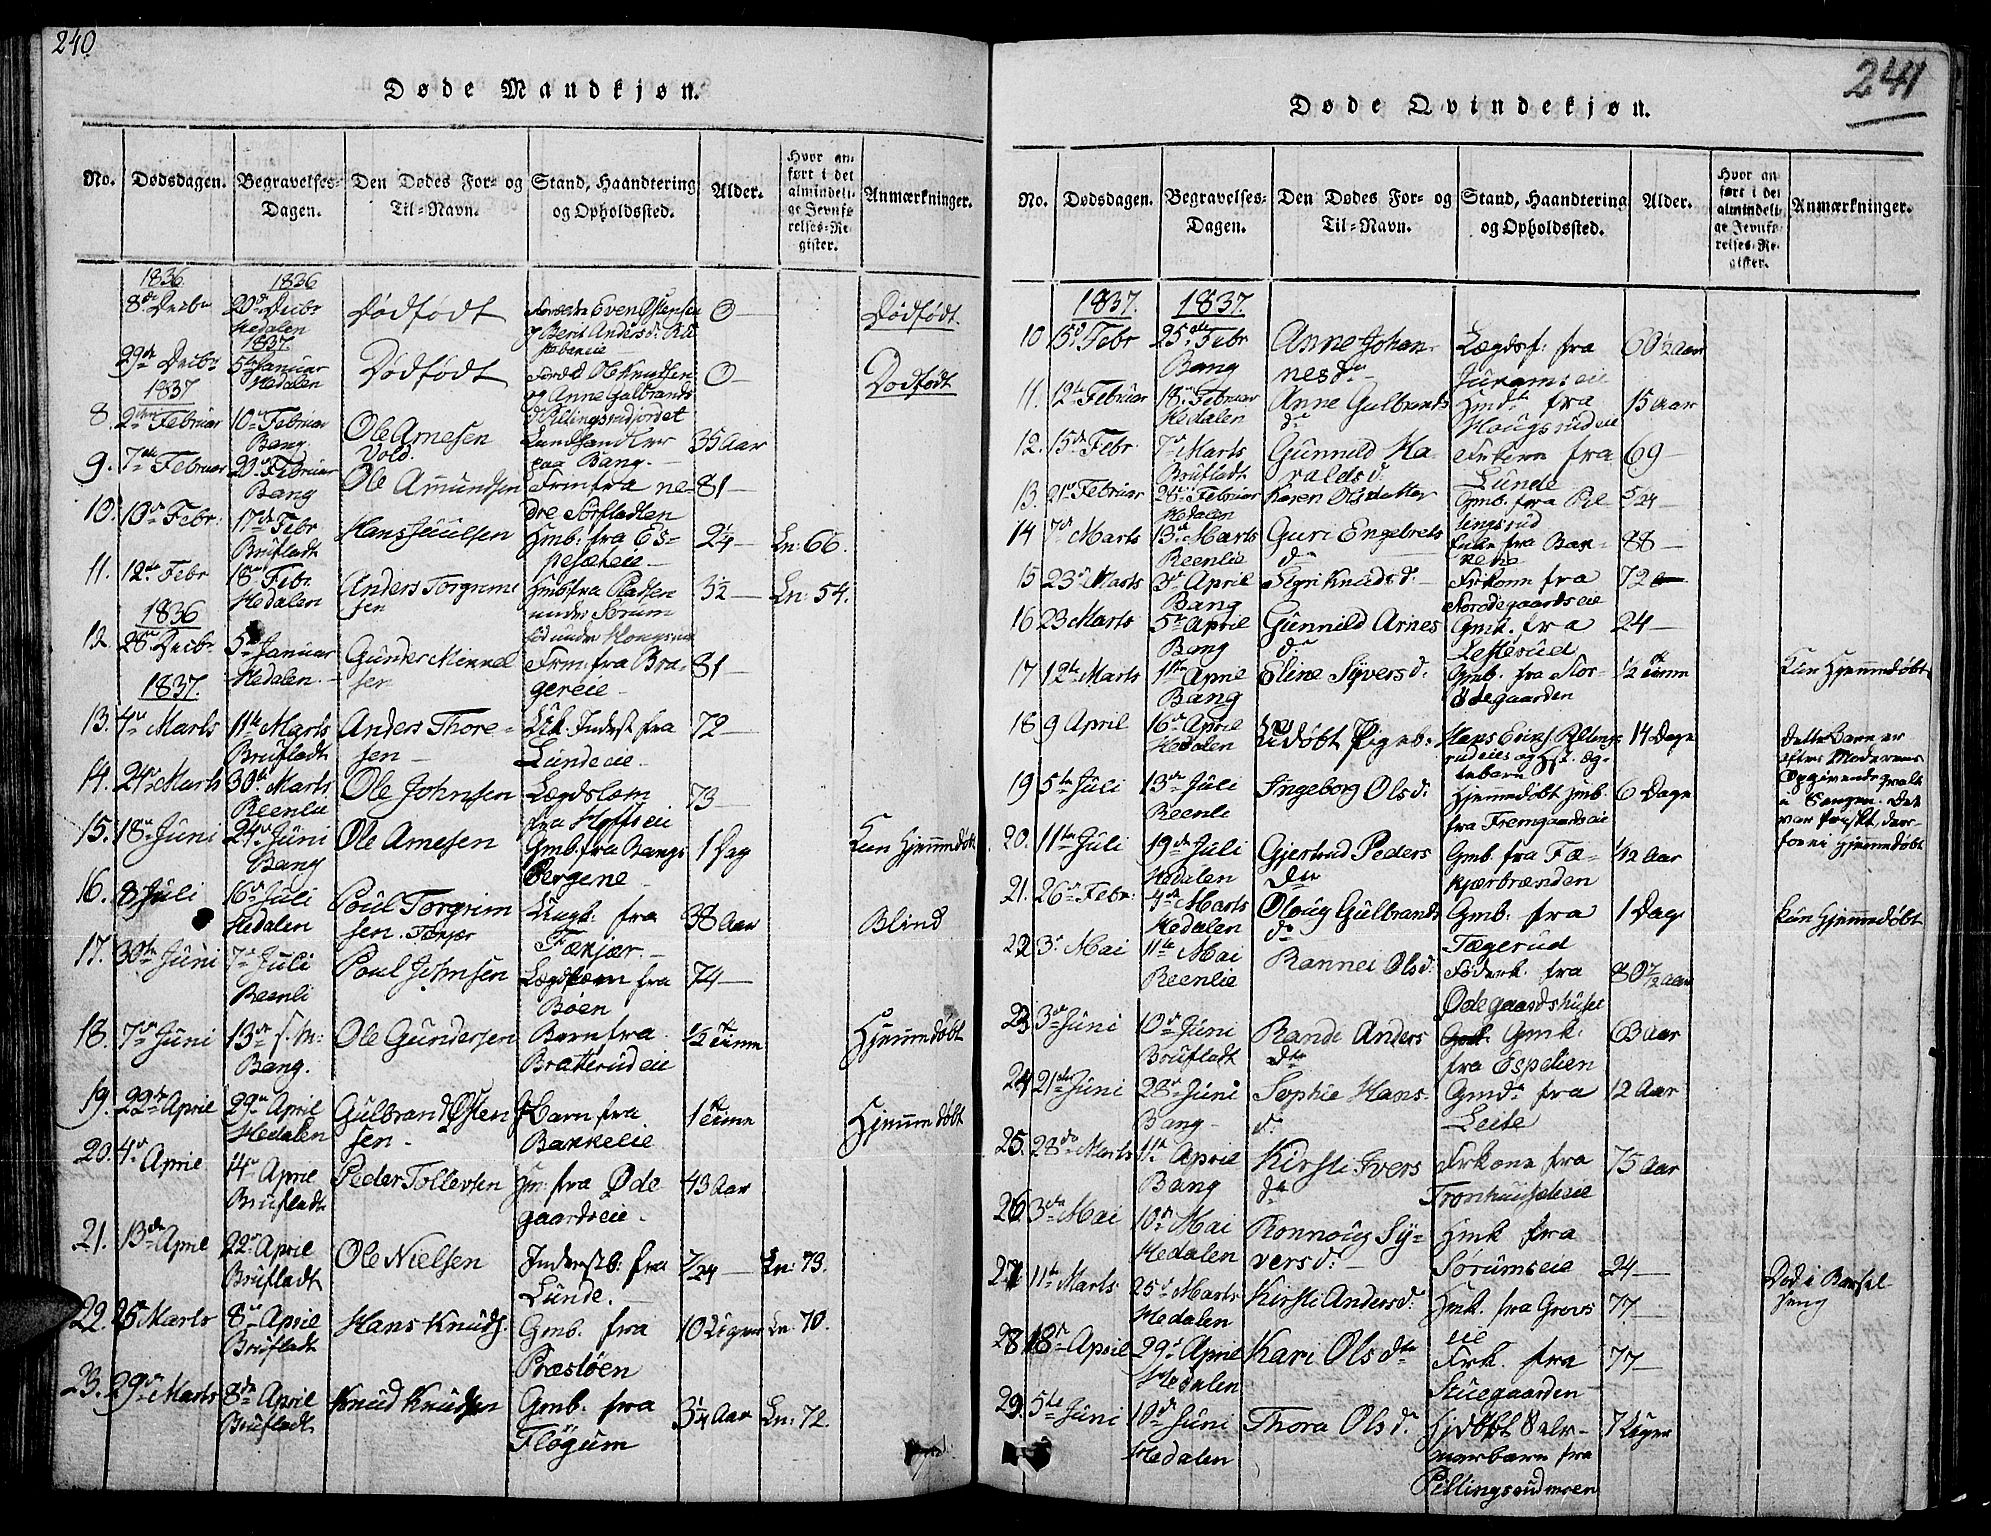 240.
Døde Mandkjøn.
No. Dødsdagen. Begravelses-Dagen. Den Dødes For= og Til=Navn. Stand, Haandtering og Opholdssted. Alder. Hvor anført i det almindelige Jevnførelses=Register. Anmærkninger.
1836 1836
8de Decbr 20de Decbr Hedalen Dødfødt Even Østensen og Berit Andersd. 0 — Dødfødt.
1837.
29de Decbr 5te Januar Hedalen Dødfødt Ole Knudsen og Anne Gulbrandsd. 0 — Dødfødt
1837
8. 2den Februar 10de Februar Bang Ole Arnesen Vold Landhandler paa Bang. — 35 Aar
9. 7de Februar 20de Februar Bang Ole Amundsen Frm fra nedre Sørfladten 81 —
10. 10de Febr: 17de Febr Brufladt Hans Juulsen Gmb: fra Espesæteie — 2¼ — Ln: 66.
11. 12te Febr 18de Febr Hedalen Anders Torgrimsen fra Pladsen under Sørum 3½ — Ln: 54.
1836
12. 28de Decbr 5te Januar Hedalen. Gunder Mikkelsen Frm: fra Bragereie — 81 —
1837.
13. 4de Marts 11te Marts Brufladt Anders Thoresen — Uk. Inderst fra Lundeie — 72 —
14. 24de Marts 30te Marts Reenlie Ole Johnsen Lægdslem fra Hoffseie 73 —
15. 18de Juni 24de Juni Bang Ole Arnesen Gmb. fra Bangs Bergene — 1 Dag Kun Hjemmedøbt
16. 8 Juli 16de Juli Hedalen Poul Torgrimsen. Fækjær Ungk: fra Fækjær. — 38 Aar Blind
17. 30te Juni 7de Juli Reenli Poul Johnsen Lægdslem fra Bøen 74 —
18. 7de Juni 13de s. M: Bang. Ole Gundersen Barn fra Braterudeie ½ Time Hjemmedøbt
19. 22de April 29de April Hedalen Gulbrand Østensen — Barn fra Bakkeie 1 Time Hjemmedøbt
20. 4de April 14de April Brufladt Peder Tollevsen Hm: fra Ødegaardseie — 43 Aar
21. 13de April 22de April Brufladt Ole Nielsen Inderstb: fra Lunde. — 7/24 — Ln: 73.
22. 25de Marts 8de April Brufladt Hans Knuds. Gmb. fra Præstøen 10 Uger Ln: 70.
23. 29de Marts 8de April Brufladt Knud Knudsen Gmb. fra Fløgum 3¼ Aar Ln: 72.
241
Døde Qvindekjøn.
No. Dødsdagen. Begravelses-Dagen. Den Dødes For= og Til=Navn. Stand, Haandtering og Opholdssted. Alder. Hvor anført i det almindelige Jevnførelses=Register. Anmærkninger.
1837. 1837.
10 15de Febr 25de Febr Bang Anne Johannesdr Lægdsf: fra Juvamseie 60½ Aar
11. 12te Februar 18de Februar Hedalen Anne Gulbrandsdr Gmdr fra Hougsrudeie 15 Aar
12. 15de Febr. 7de Marts Brufladt Gunnild Haraldsd. fra Lunde 69 —
13. 21de Februar 28de Februar Hedalen Karen Olsdatter Gmb. fra Pillingsrud 5/24
14 7de Marts 13de Marts Reenlie Guri Engebretsdr fra Bakkene 88 —
15 23de Marts 3de April Bang Sigri Knudsd. — Frkone fra Storødegaardseie 72
16 23 Marts 5te April Bang Gunnild Arnesdr Gmk. fra Lesterud 24 —
17 12te Marts 1ste April Bang Eline Syversd. Gmb. fra Storødegaarden ½ Time Kun Hjemmedøbt
18 9 April 16de April Hedalen Udøbt Pigeb: Hans Erichs. Pillingsrudeies og Hst. Ægtebarn 14 Dage Dette Barn er efter Moderens Opgivende qvalt i Sengen. Det var friskt, derfor ei hjemmedøbt
19 5te Juli 13de Juli Reenli Ingeborg Olsd. Hjemmedøbt Gmb. fra Fremgaardseie 6 Dage
20. 11te Juli 19de Juli Hedalen Gjertrud Pedersdtr Gmb. fra Fækjærbrænden 1/12 Aar
21. 26de Febr: 4de Marts Hedalen Oloug Gulbrandsdr Gmb: fra Tægerud 1 Dag Kun Hjemmedøbt
22 3de Mai 11te Mai Reenlie Rannei Olsd: Føderk. fra Ødegaardshuset 80½ Aar
23 3de Juni 10de Juni Brufladt Randi Andersdtr Gmk: fra Espelien 63 Aar
24 21de Juni 28de Juni Bang — Sophie Hansd. Gmdr fra Leite 12 Aar
25. 28de Marts 11te April Bang Kirsti Iversdr Frkone fra Tronhuusleie 75 Aar
26 3de Mai 10de Mai Hedalen Ronnoug Syversd: — Hmk fra Sørumseie 24 — Død i Barselseng
27 11te Marts 25de Marts Hedalen Kirsti Andersd: Hmk. fra Grovseie 77 —
28 18de April 29de April Hedalen Kari Olsdtr Frk. fra Stuegaarden 77 —
29. 5te Juni 10de Juni Hedalen Thora Olsd. Hjdøbt Selveierbarn fra Pillingsrudmoen 7 Uger